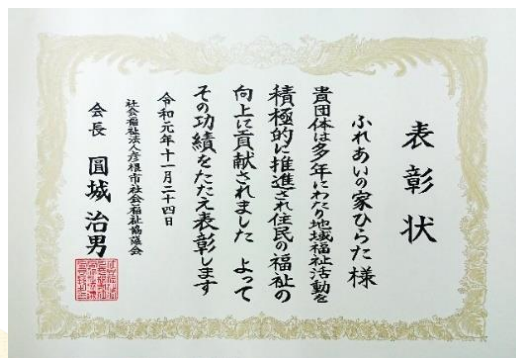 表彰状
ふれあいの家ひらた様
貴団体は多年にわたり地域福祉活動を
積極的に推進され住民の福祉の
向上に貢献されました よって
その功績をたたえ表彰します
令和元年十一月二十四日
社会福祉法人彦根市社会福祉協議会
会長 圓城治男